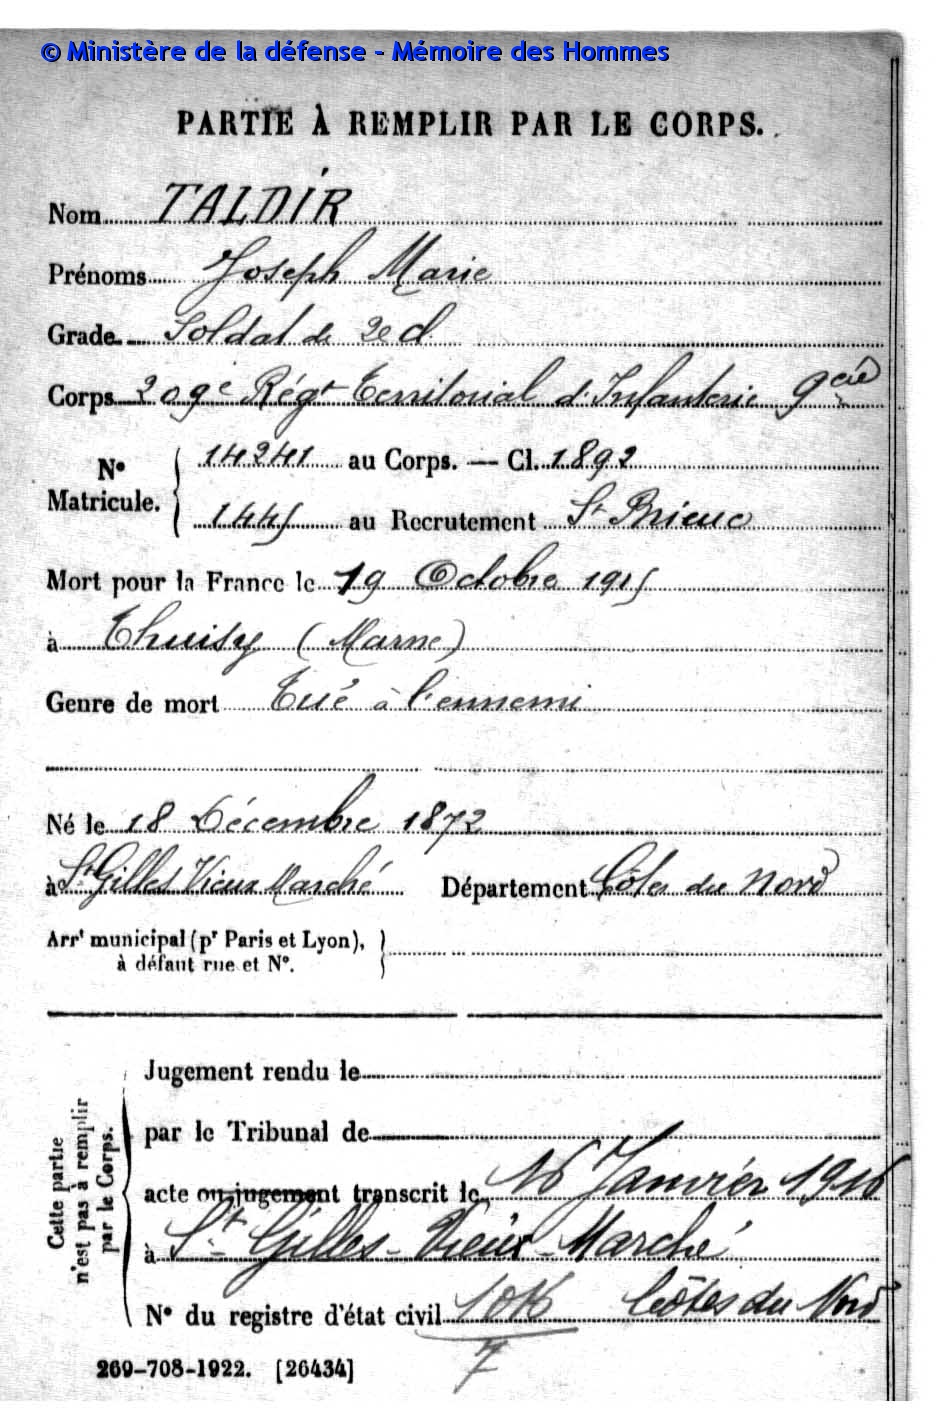 © Ministère de la défense - Mémoire des Hommes
PARTIE À REMPLIR PAR LE CORPS.
Nom TALDIR
Prénoms Joseph Marie
Grade Soldat de 2e cl.
Corps 209e Régt Territorial d'Infanterie 9 cie
N° Matricule. { 14241 au Corps. — Cl. 1892
1445 au Recrutement St Brieuc
Mort pour la France le 19 Octobre 1915
à Thuisy (Marne)
Genre de mort Tué à l'ennemi
Né le 18 Décembre 1872
à St Gilles Vieux Marché Département Côtes du Nord
Arrt municipal (pr Paris et Lyon), }
à défaut rue et N°.
Cette partie n'est pas à remplir par le Corps.
Jugement rendu le
par le Tribunal de
acte ou jugement transcrit le 16 Janvier 1916
à St Gilles-Vieux-Marché
N° du registre d'état civil Côtes du Nord
7
269-708-1922. [26434]